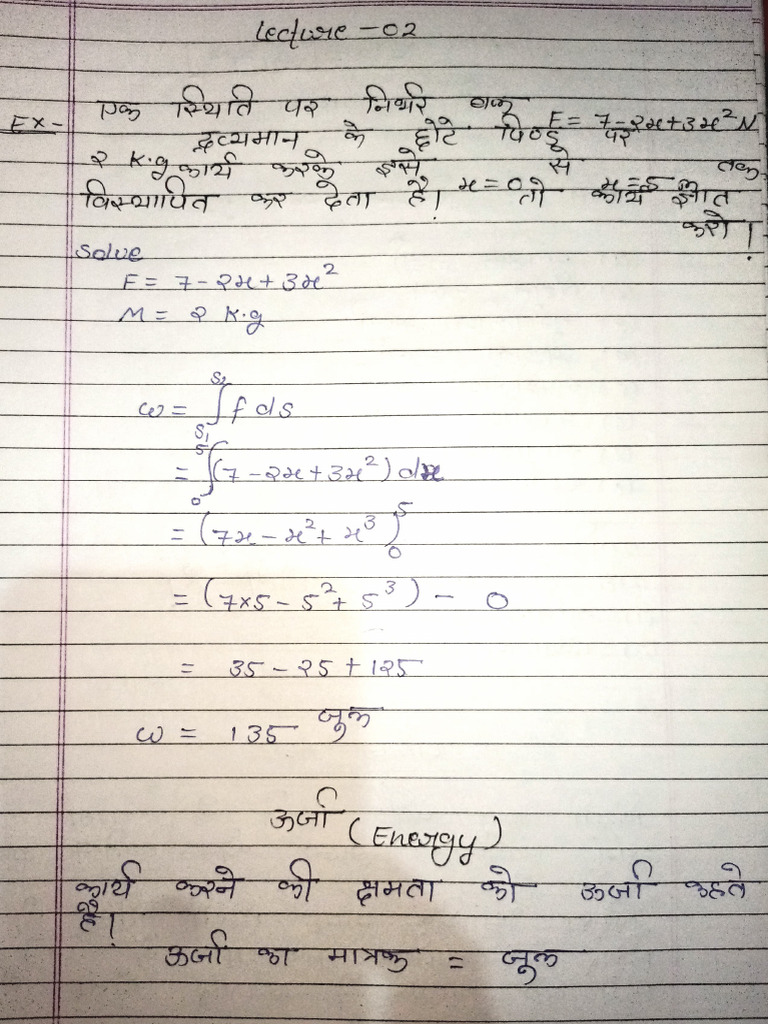 Lecture - 02
Ex- एक स्थिति पर निर्भर बल F = 7-2x+3x² N
2 K.g द्रव्यमान के छोटे पिण्ड पर
कार्य करके इसे x = 0 से x = 5 m तक
विस्थापित कर देता है। तो कार्य ज्ञात
करो।
Solve
F = 7-2x+3x²
M = 2 K.g
w = ∫_{S₁}^{S₂} f ds
= ∫_0^5 (7-2x+3x²) dx
= (7x - x² + x³)_0^5
= (7×5 - 5² + 5³) - 0
= 35 - 25 + 125
w = 135 जूल
ऊर्जा (Energy)
कार्य करने की क्षमता को ऊर्जा कहते
है।
ऊर्जा का मात्रक = जूल